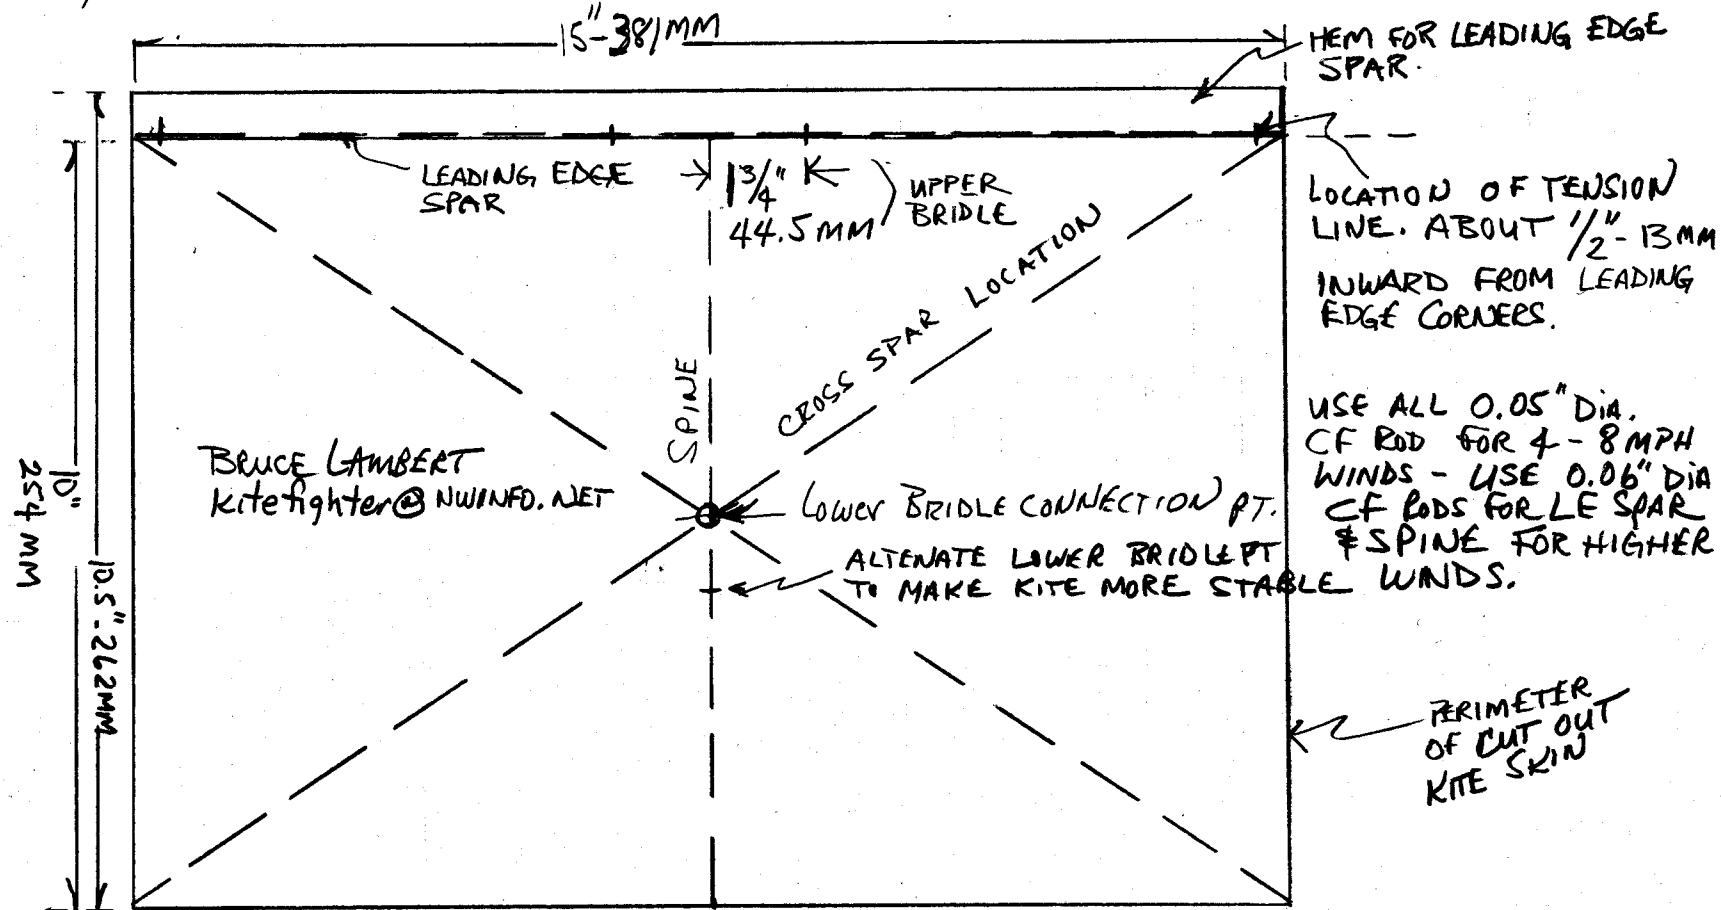 15"-381MM
HEM FOR LEADING EDGE
SPAR.
LEADING EDGE
SPAR
1 3/4"
44.5MM
UPPER
BRIDLE
LOCATION OF TENSION
LINE. ABOUT 1/2"-13MM
INWARD FROM LEADING
EDGE CORNERS.
CROSS SPAR LOCATION
SPINE
USE ALL 0.05" DIA.
CF ROD FOR 4-8 MPH
WINDS - USE 0.06" DIA
CF RODS FOR LE SPAR
& SPINE FOR HIGHER
WINDS.
BRUCE LAMBERT
kitefighter@NWINFO.NET
LOWER BRIDLE CONNECTION PT.
ALTENATE LOWER BRIDLE PT
TO MAKE KITE MORE STABLE
10"
254 MM
10.5"-262MM
PERIMETER
OF CUT OUT
KITE SKIN